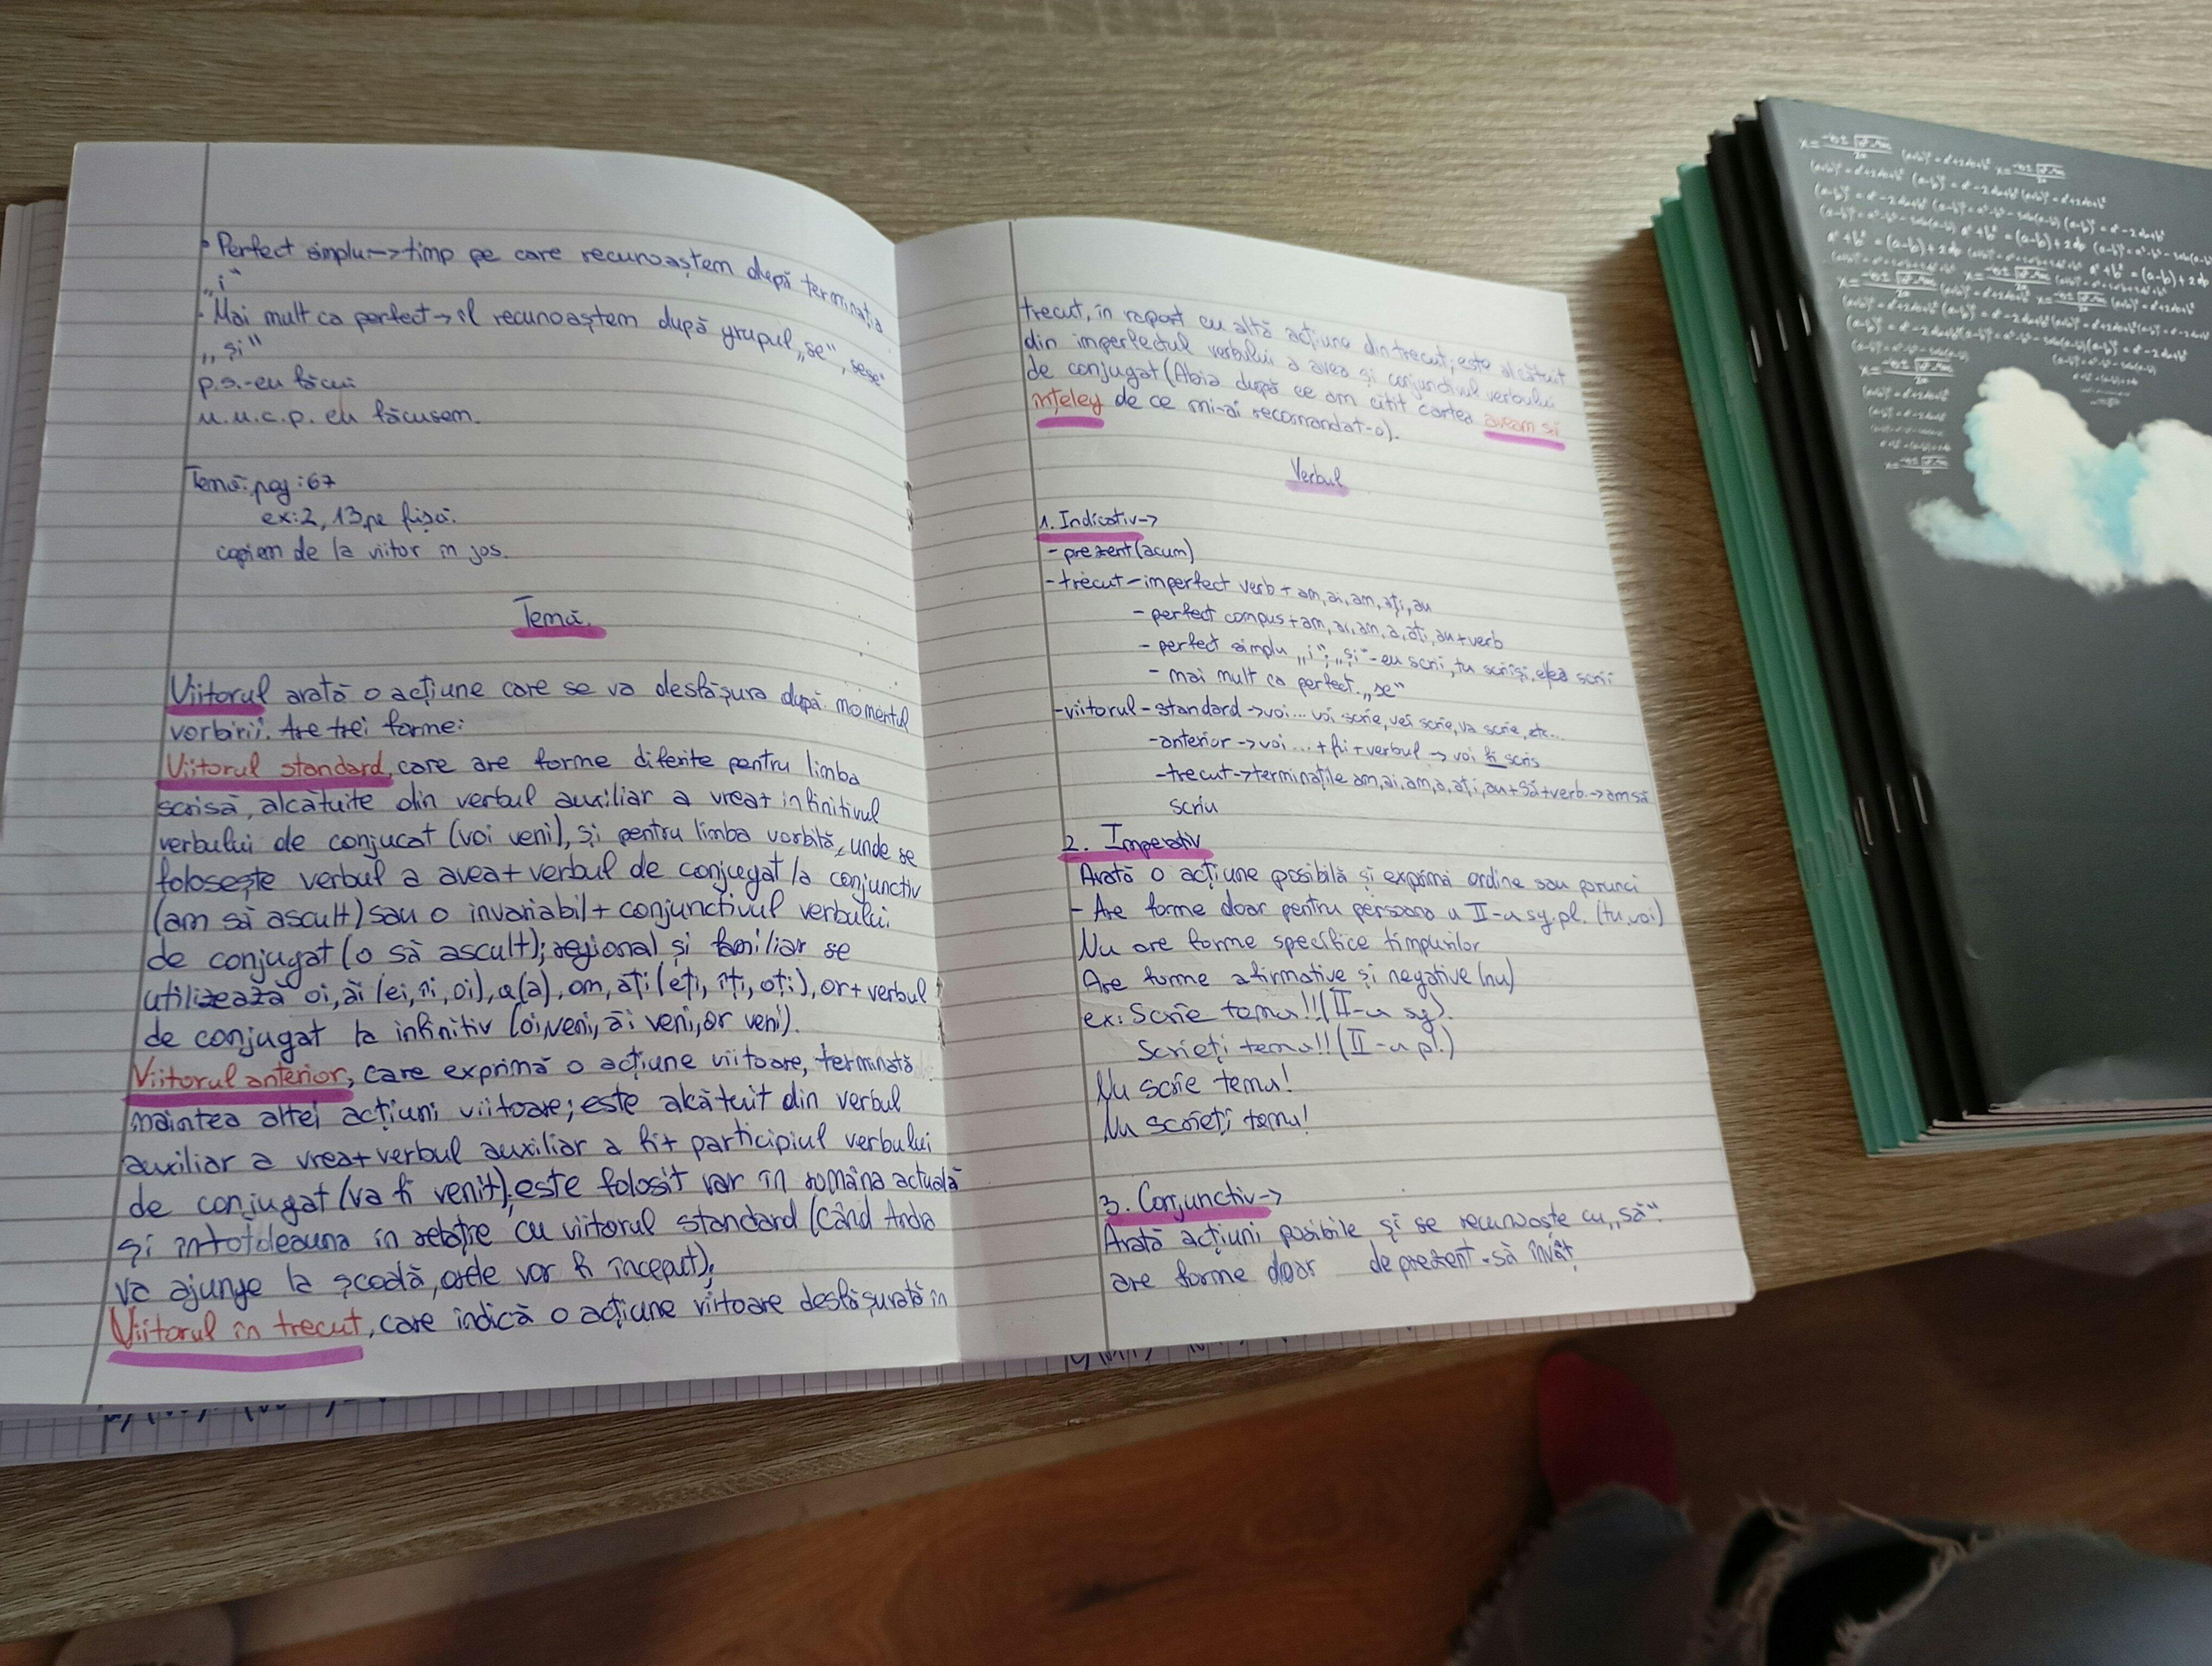 • Perfect simplu–>timp pe care recunoaștem după terminația
„i“
• Mai mult ca perfect→îl recunoaștem după grupul„se“, sese“
„și“
p.s.-eu făcui
m.m.c.p. eu făcusem.
Temă: pag:67
ex:2, 13,pe fișă.
copiem de la viitor în jos.
Temă.
Viitorul arată o acțiune care se va desfășura după momentul
vorbirii. Are trei forme:
Viitorul standard, care are forme diferite pentru limba
scrisă, alcătuite din verbul auxiliar a vrea+ infinitivul
verbului de conjucat (voi veni), și pentru limba vorbită, unde se
folosește verbul a avea+ verbul de conjugat la conjunctiv
(am să ascult) sau o invariabil+ conjunctivul verbului
de conjugat (o să ascult); regional și familiar se
utilizează oi, ăi (ei, ii, oi), a(ă), om, ăți (eți, iți, oți), or+ verbul
de conjugat la infinitiv (oi veni, ăi veni, or veni).
Viitorul anterior, care exprimă o acțiune viitoare, terminată
înaintea altei acțiuni viitoare; este alcătuit din verbul
auxiliar a vrea+verbul auxiliar a fi+ participiul verbului
de conjugat (va fi venit); este folosit rar în româna actuală
și întotdeauna în relație cu viitorul standard (Când Andra
va ajunge la școală, orele vor fi început);
Viitorul în trecut, care indică o acțiune viitoare desfășurată în
trecut, în raport cu altă acțiune din trecut; este alcătuit
din imperfectul verbului a avea și conjunctivul verbului
de conjugat (Abia după ce am citit cartea aveam să
înțeleg de ce mi-ai recomandat-o).
Verbul
1. Indicativ–>
- prezent(acum)
-trecut – imperfect verb + am, ai, am, ați, au
- perfect compus + am, ai, am, a, ați, au + verb
- perfect simplu „i“; „și“ - eu scrii, tu scriși, el/ea scrii
- mai mult ca perfect „se“
-viitorul – standard –>voi... voi scrie, vei scrie, va scrie, etc...
-anterior –>voi ... + fi + verbul –> voi fi scris
-trecut–>terminațile am, ai, am, a, ați, au + să + verb –> am să
scriu
2. Imperativ
Arată o acțiune posibilă și exprimă ordine sau porunci
- Are forme doar pentru persoana a II-a sg. pl. (tu, voi)
Nu are forme specifice timpurilor
Are forme afirmative și negative (nu)
ex: Scrie tema!!(II-a sg).
Scrieți tema!!(II-a pl.)
Nu scrie tema!
Nu scrieți tema!
3. Conjunctiv–>
Arată acțiuni posibile și se recunoaște cu „să“.
are forme doar de prezent - să învăț